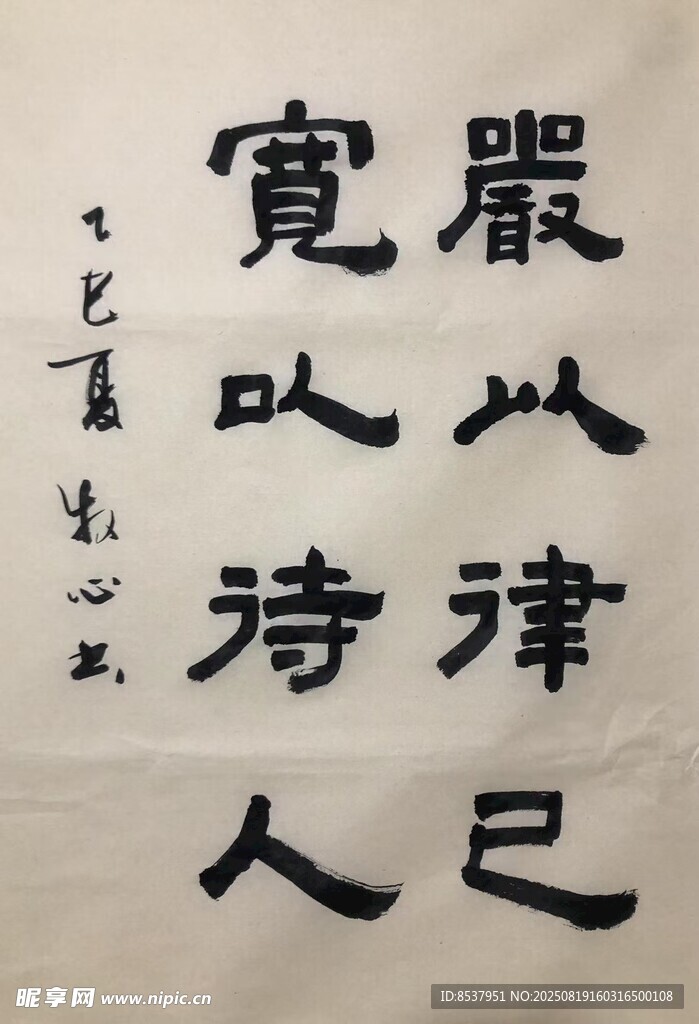 嚴以律己
寬以待人
乙巳夏 牧心书
昵享网 www.nipic.cn
ID:8537951 NO:20250819160316500108